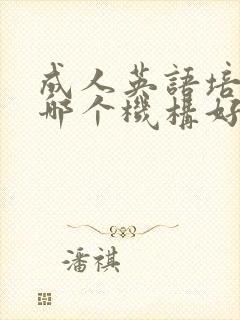 成人英語培
哪个機構好
潘祺